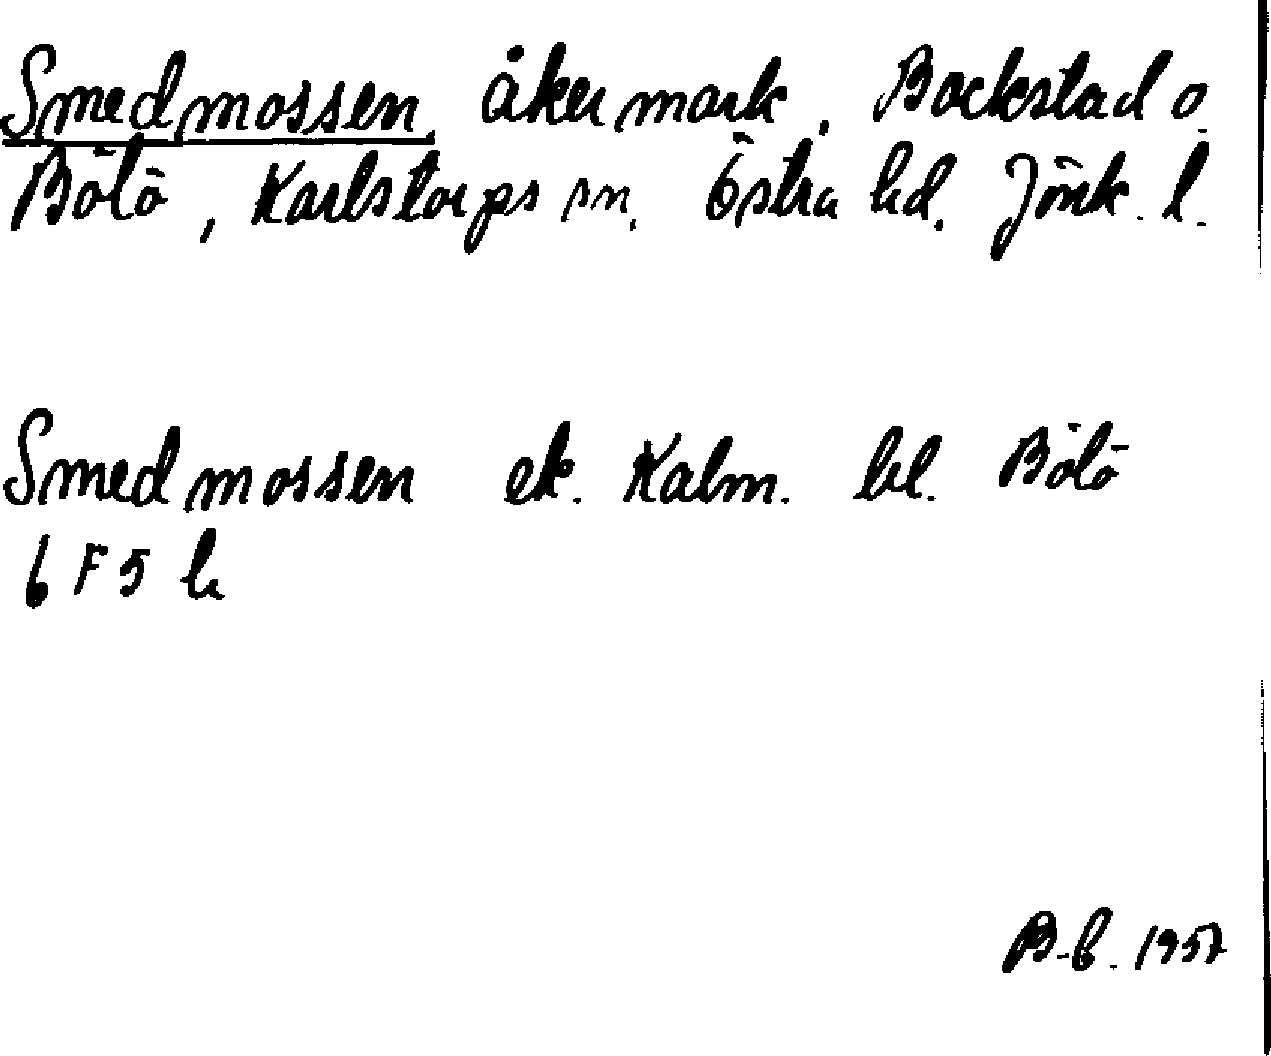 Smedmossen, åkermark. Bockstad o.
Bölö, Karlstorps sn. Östra hd. Jönk. l.
Smedmossen ek. Kalm. bl. Bölö
6 F 5 h
B-b. 1957